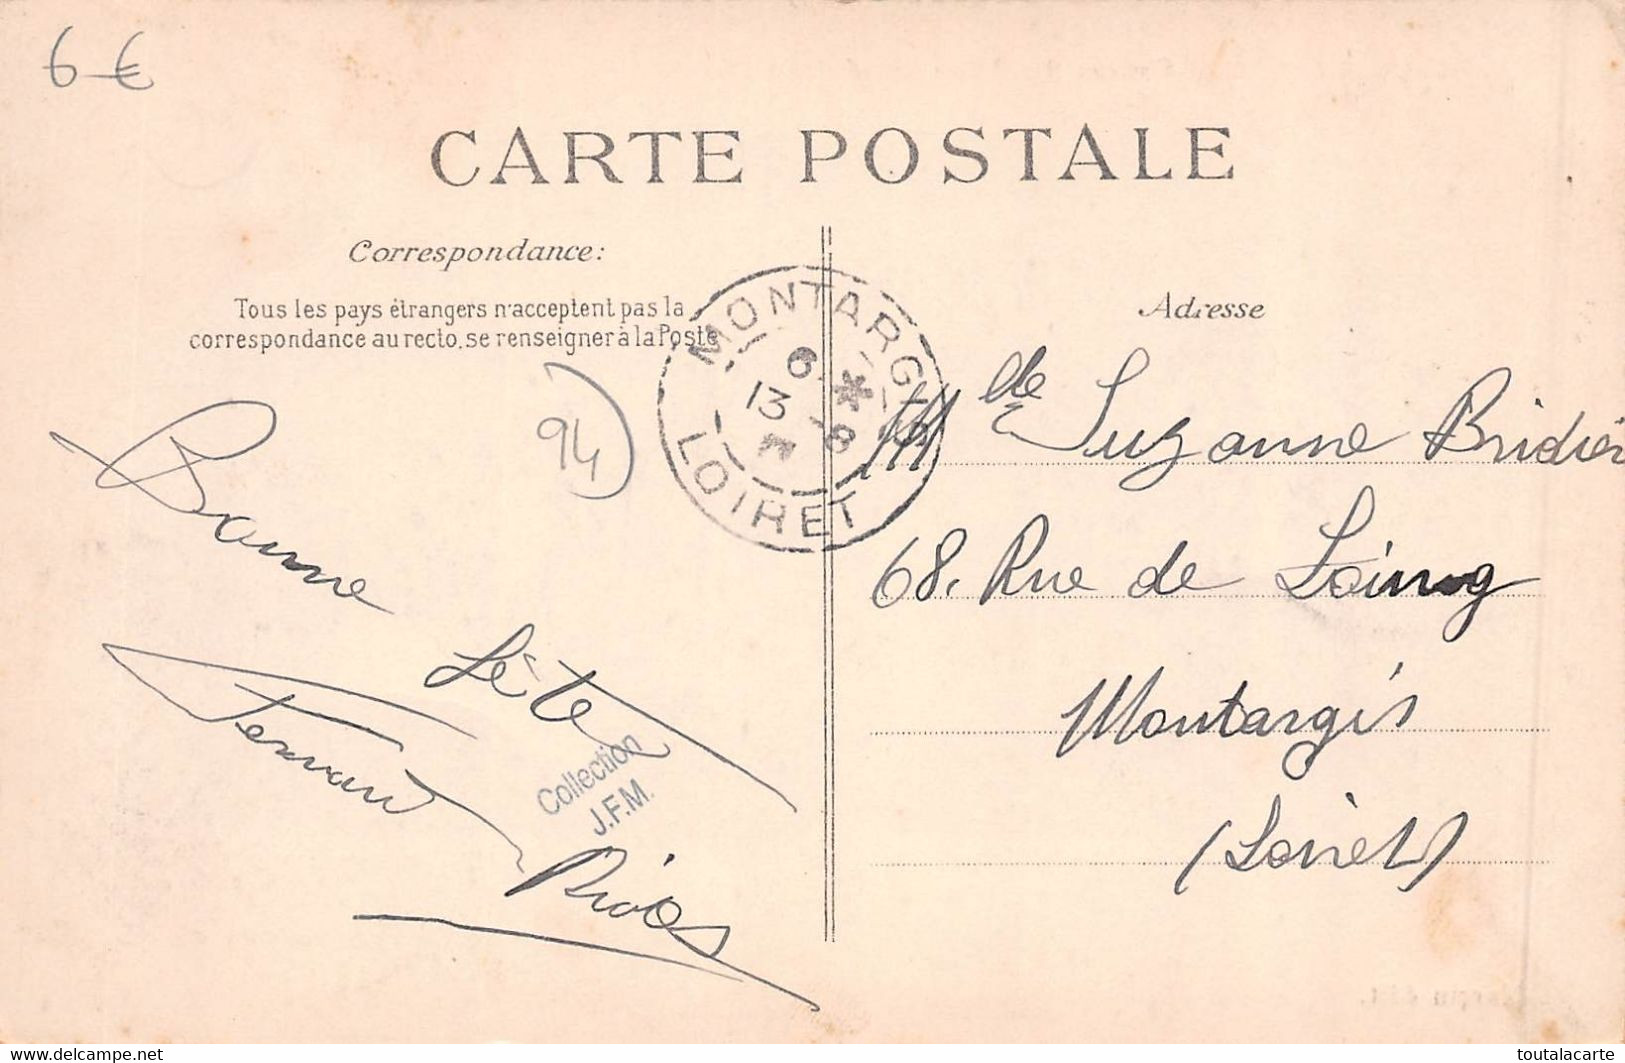 6 €
CARTE POSTALE
Correspondance:
Tous les pays étrangers n'acceptent pas la
correspondance au recto, se renseigner à la Poste
94
MONTARGIS
6 *
13 - 8
LOIRET
Bonne
fête
Fernand
Collection
J.F.M.
Adresse
Mlle Suzanne Bridier
68, Rue de Loing
Montargis
(Loiret)
www.delcampe.net
toutalacarte